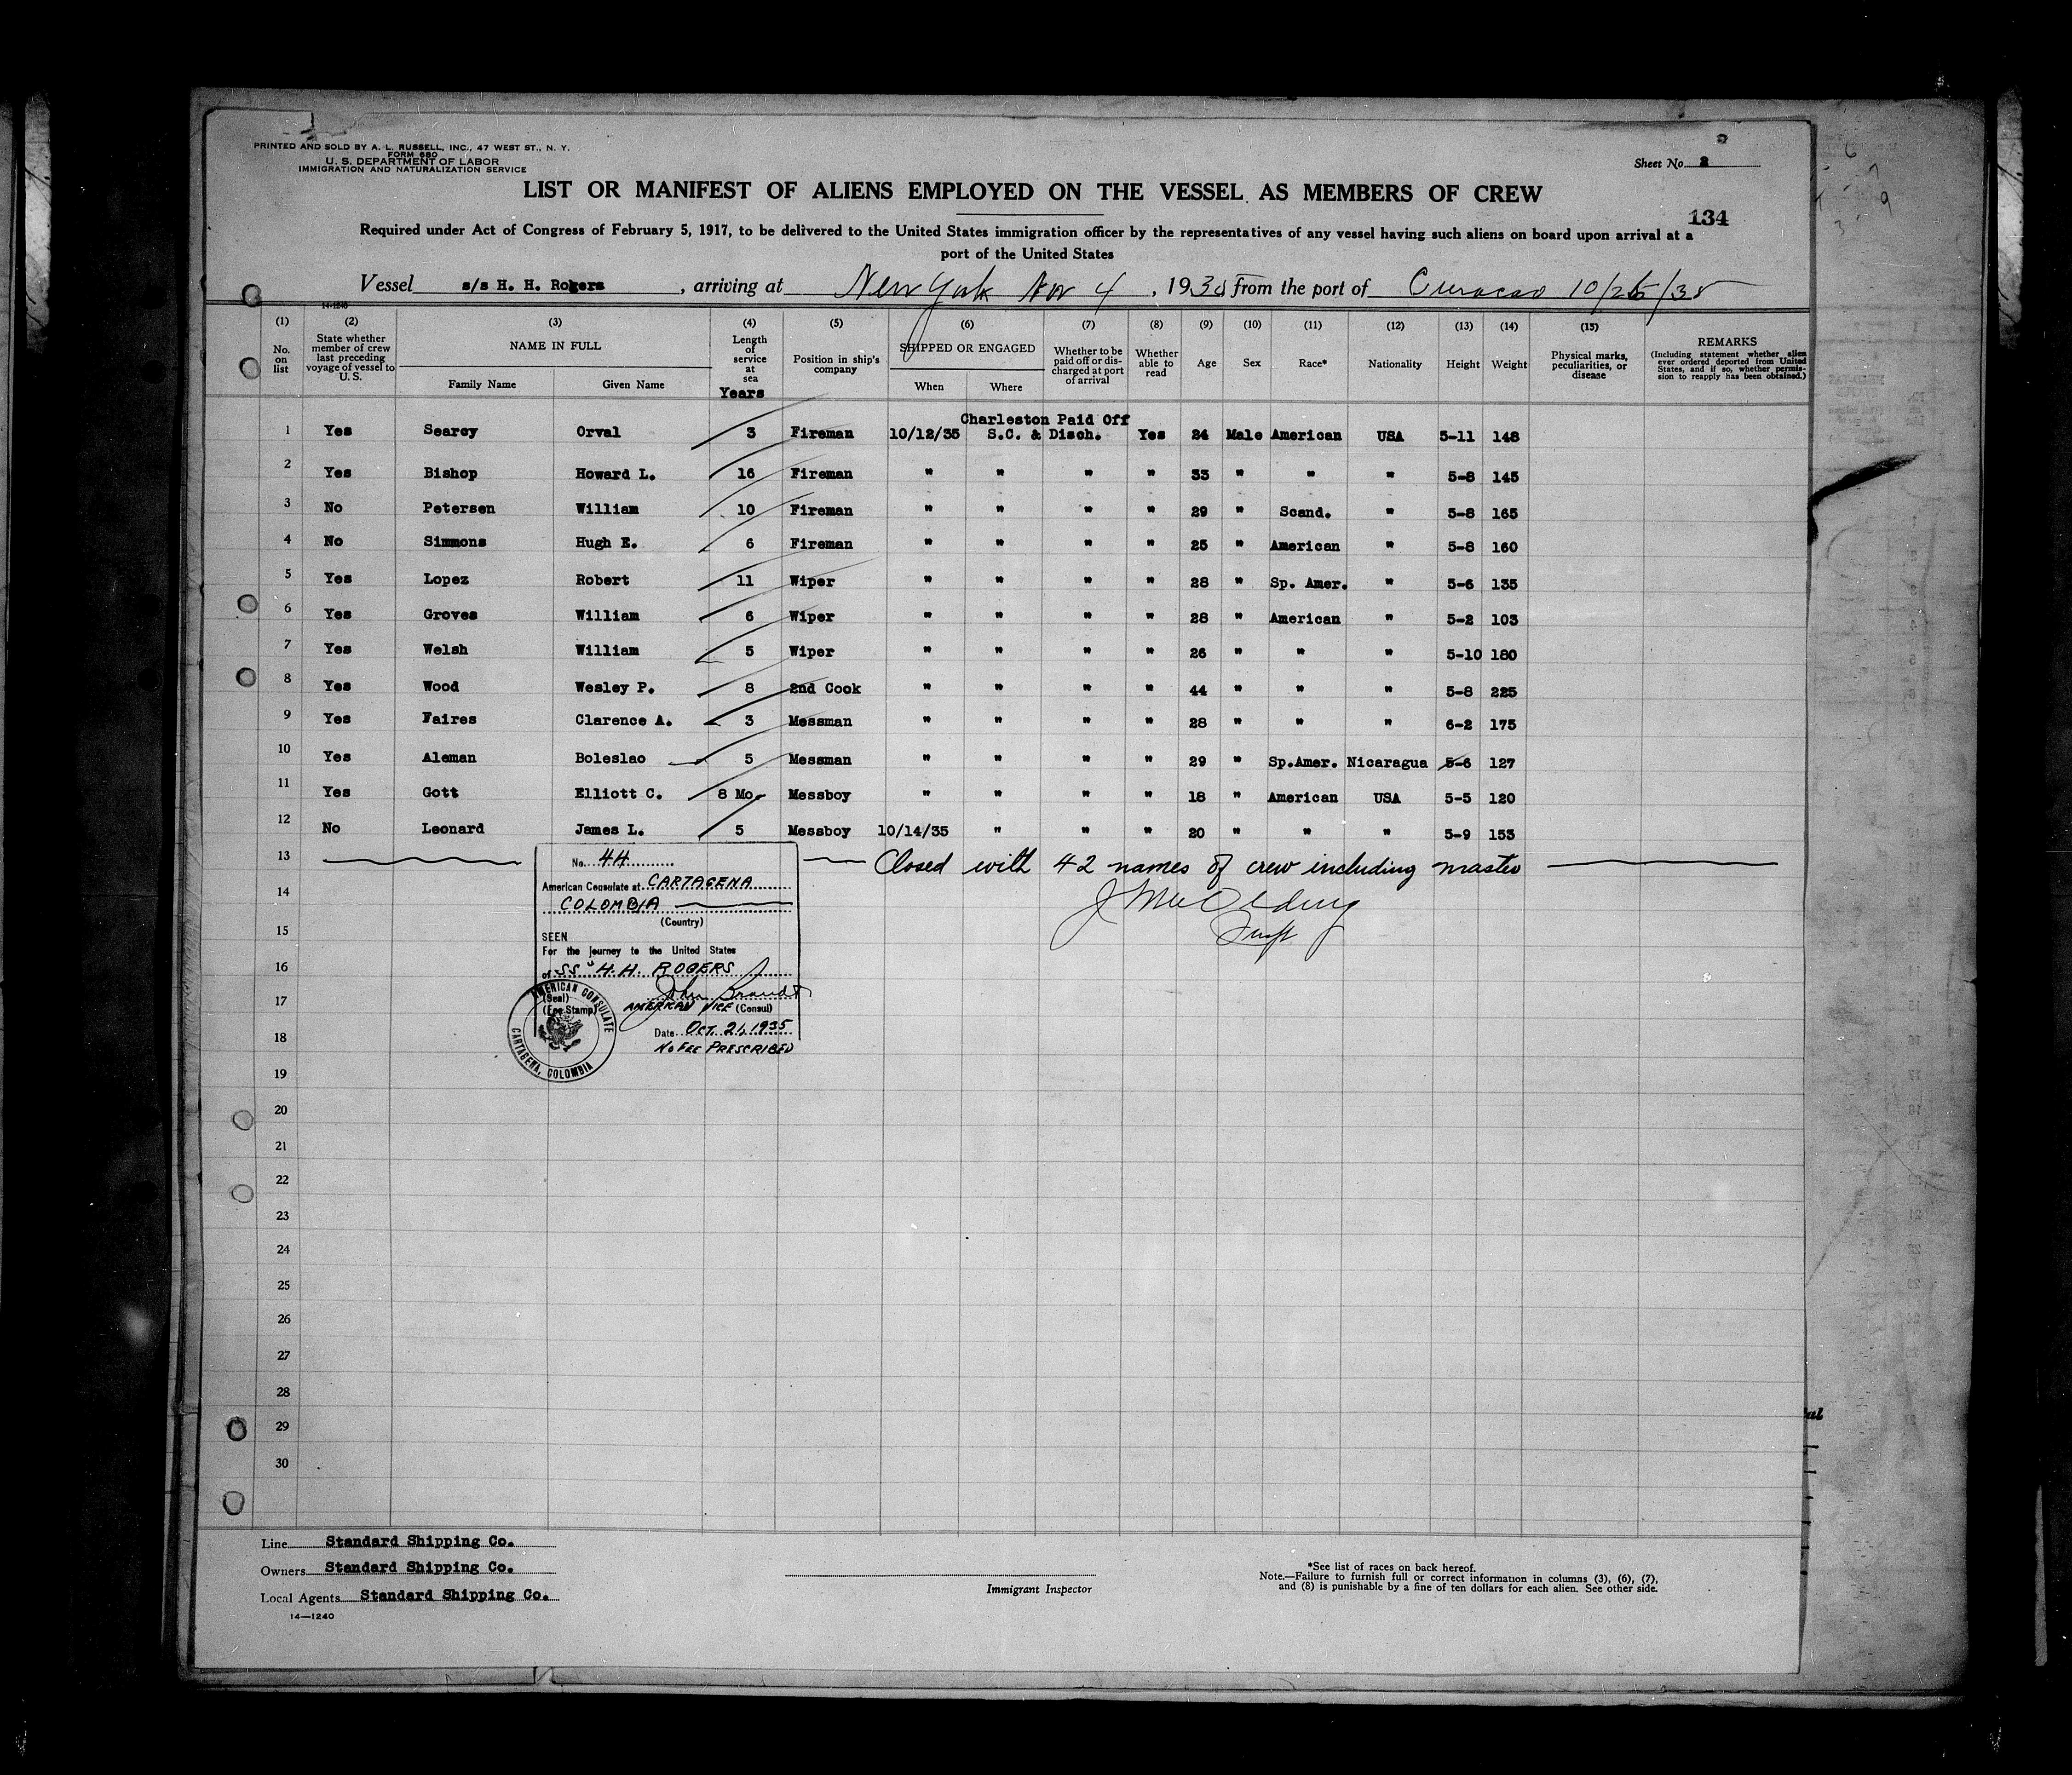 PRINTED AND SOLD BY A. L. RUSSELL, INC., 47 WEST ST., N. Y.
FORM 680
U. S. DEPARTMENT OF LABOR
IMMIGRATION AND NATURALIZATION SERVICE
Sheet No. 2
LIST OR MANIFEST OF ALIENS EMPLOYED ON THE VESSEL AS MEMBERS OF CREW
134
Required under Act of Congress of February 5, 1917, to be delivered to the United States immigration officer by the representatives of any vessel having such aliens on board upon arrival at a
port of the United States
Vessel s/s H. H. Rogers, arriving at New York Nov 4, 1935, from the port of Curacao 10/26/35
14-1240
(1) (2) (3) (4) (5) (6) (7) (8) (9) (10) (11) (12) (13) (14) (15)
No. on list
State whether member of crew last preceding voyage of vessel to U. S.
NAME IN FULL
Family Name Given Name
Length of service at sea
Years
Position in ship's company
SHIPPED OR ENGAGED
When Where
Whether to be paid off or discharged at port of arrival
Whether able to read
Age Sex Race* Nationality Height Weight
Physical marks, peculiarities, or disease
REMARKS
(Including statement whether alien ever ordered deported from United States, and if so, whether permission to reapply has been obtained.)
Charleston Paid Off
1 Yes Searcy Orval 3 Fireman 10/12/35 S.C. & Disch. Yes 24 Male American USA 5-11 148
2 Yes Bishop Howard L. 16 Fireman " " " " 33 " " " 5-8 145
3 No Petersen William 10 Fireman " " " " 29 " Scand. " 5-8 165
4 No Simmons Hugh E. 6 Fireman " " " " 25 " American " 5-8 160
5 Yes Lopez Robert 11 Wiper " " " " 28 " Sp. Amer. " 5-6 135
6 Yes Groves William 6 Wiper " " " " 28 " American " 5-2 103
7 Yes Welsh William 5 Wiper " " " " 26 " " " 5-10 180
8 Yes Wood Wesley P. 8 2nd Cook " " " " 44 " " " 5-8 225
9 Yes Faires Clarence A. 3 Messman " " " " 28 " " " 6-2 175
10 Yes Aleman Boleslao 5 Messman " " " " 29 " Sp.Amer. Nicaragua 5-6 127
11 Yes Gott Elliott C. 8 Mo. Messboy " " " " 18 " American USA 5-5 120
12 No Leonard James L. 5 Messboy 10/14/35 " " " 20 " " " 5-9 153
13 Closed with 42 names of crew including master
14
15
16
17
18
19
20
21
22
23
24
25
26
27
28
29
30
No. 44
American Consulate at CARTAGENA
COLOMBIA
(Country)
SEEN
For the journey to the United States
of SS "H.H. ROGERS
John Brandt
(Seal)
(Fee Stamp)
AMERICAN VICE (Consul)
Date OCT. 21, 1935
NO FEE PRESCRIBED
AMERICAN CONSULATE
CARTAGENA, COLOMBIA
Line Standard Shipping Co.
Owners Standard Shipping Co.
Local Agents Standard Shipping Co.
14—1240
Immigrant Inspector
*See list of races on back hereof.
Note.—Failure to furnish full or correct information in columns (3), (6), (7),
and (8) is punishable by a fine of ten dollars for each alien. See other side.